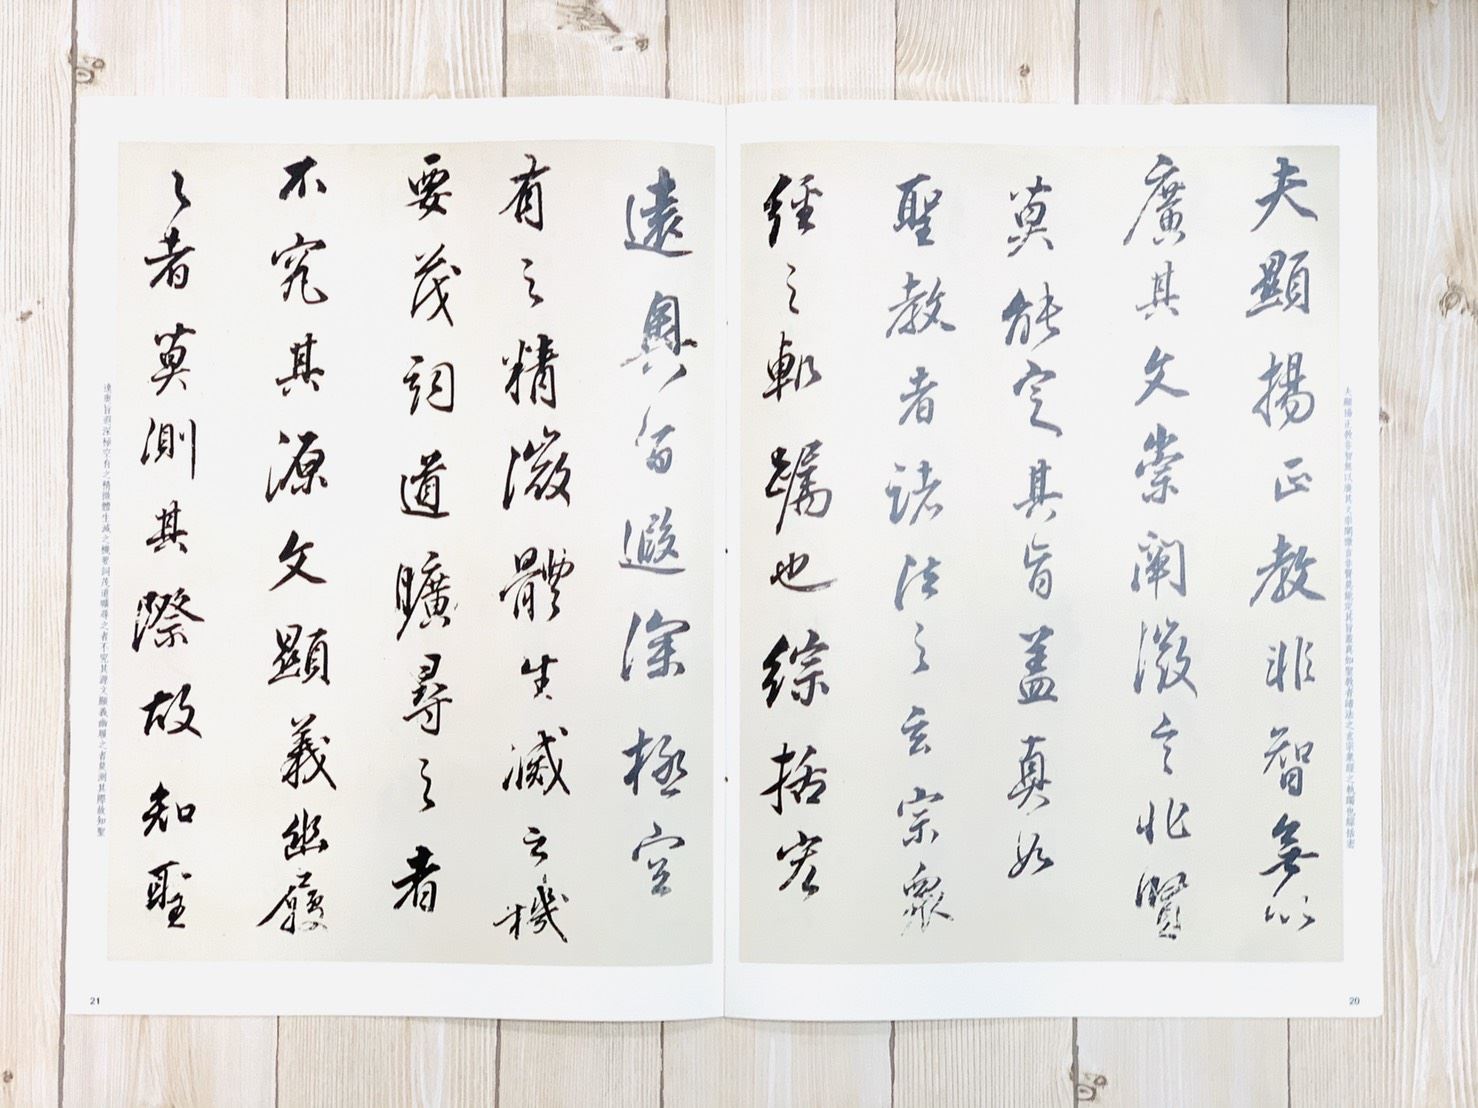 夫顯揚正教非智無以
廣其文崇闡微言非賢
莫能定其旨盖真如
聖教者諸法之玄宗衆
經之軌躅也綜括宏
遠奧旨遐深極空
有之精微體生滅之機
要茂詞道曠尋之者
不究其源文顯義幽履
之者莫測其際故知聖
夫顯揚正教非智無以廣其文崇闡微言非賢莫能定其旨蓋真如聖教者諸法之玄宗衆經之軌躅也綜括宏
遠奧旨遐深極空有之精微體生滅之機要詞茂道曠尋之者不究其源文顯義幽履之者莫測其際故知聖
20
21